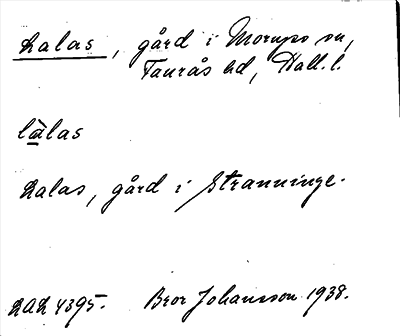 Lalas, gård i Morups sn,
Faurås hd, Hall. l.
là̱las
Lalas, gård i Stranninge.
LAL 4395. Bror Johansson 1938.